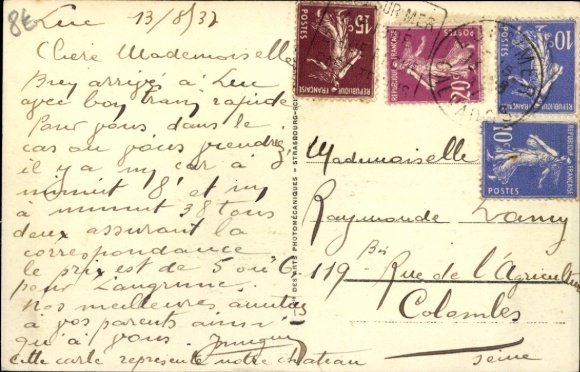 8€
Luc 13/8/37
Chère Mademoiselle
Bien arrivé à Luc
avec bon train rapide
Pour vous dans le
cas où vous viendrez,
il y a un car à
minuit 8' et un
à minuit 38 tous
deux assurant la
correspondance
le prix est de 5 ou 6
pour Langrune.
Nos meilleures amitiés
à vos parents ainsi
qu'à vous.
cette carte représente notre chateau
DES ARTS PHOTOMÉCANIQUES - STRASBOURG
15c
POSTES
REPUBLIQUE FRANÇAISE
20c
POSTES
REPUBLIQUE FRANÇAISE
10c
POSTES
REPUBLIQUE FRANÇAISE
10c
POSTES
REPUBLIQUE FRANÇAISE
SUR MER
CALVADOS
Mademoiselle
Raymonde
119 Bis Rue de l'Agriculture
Colombes
Seine